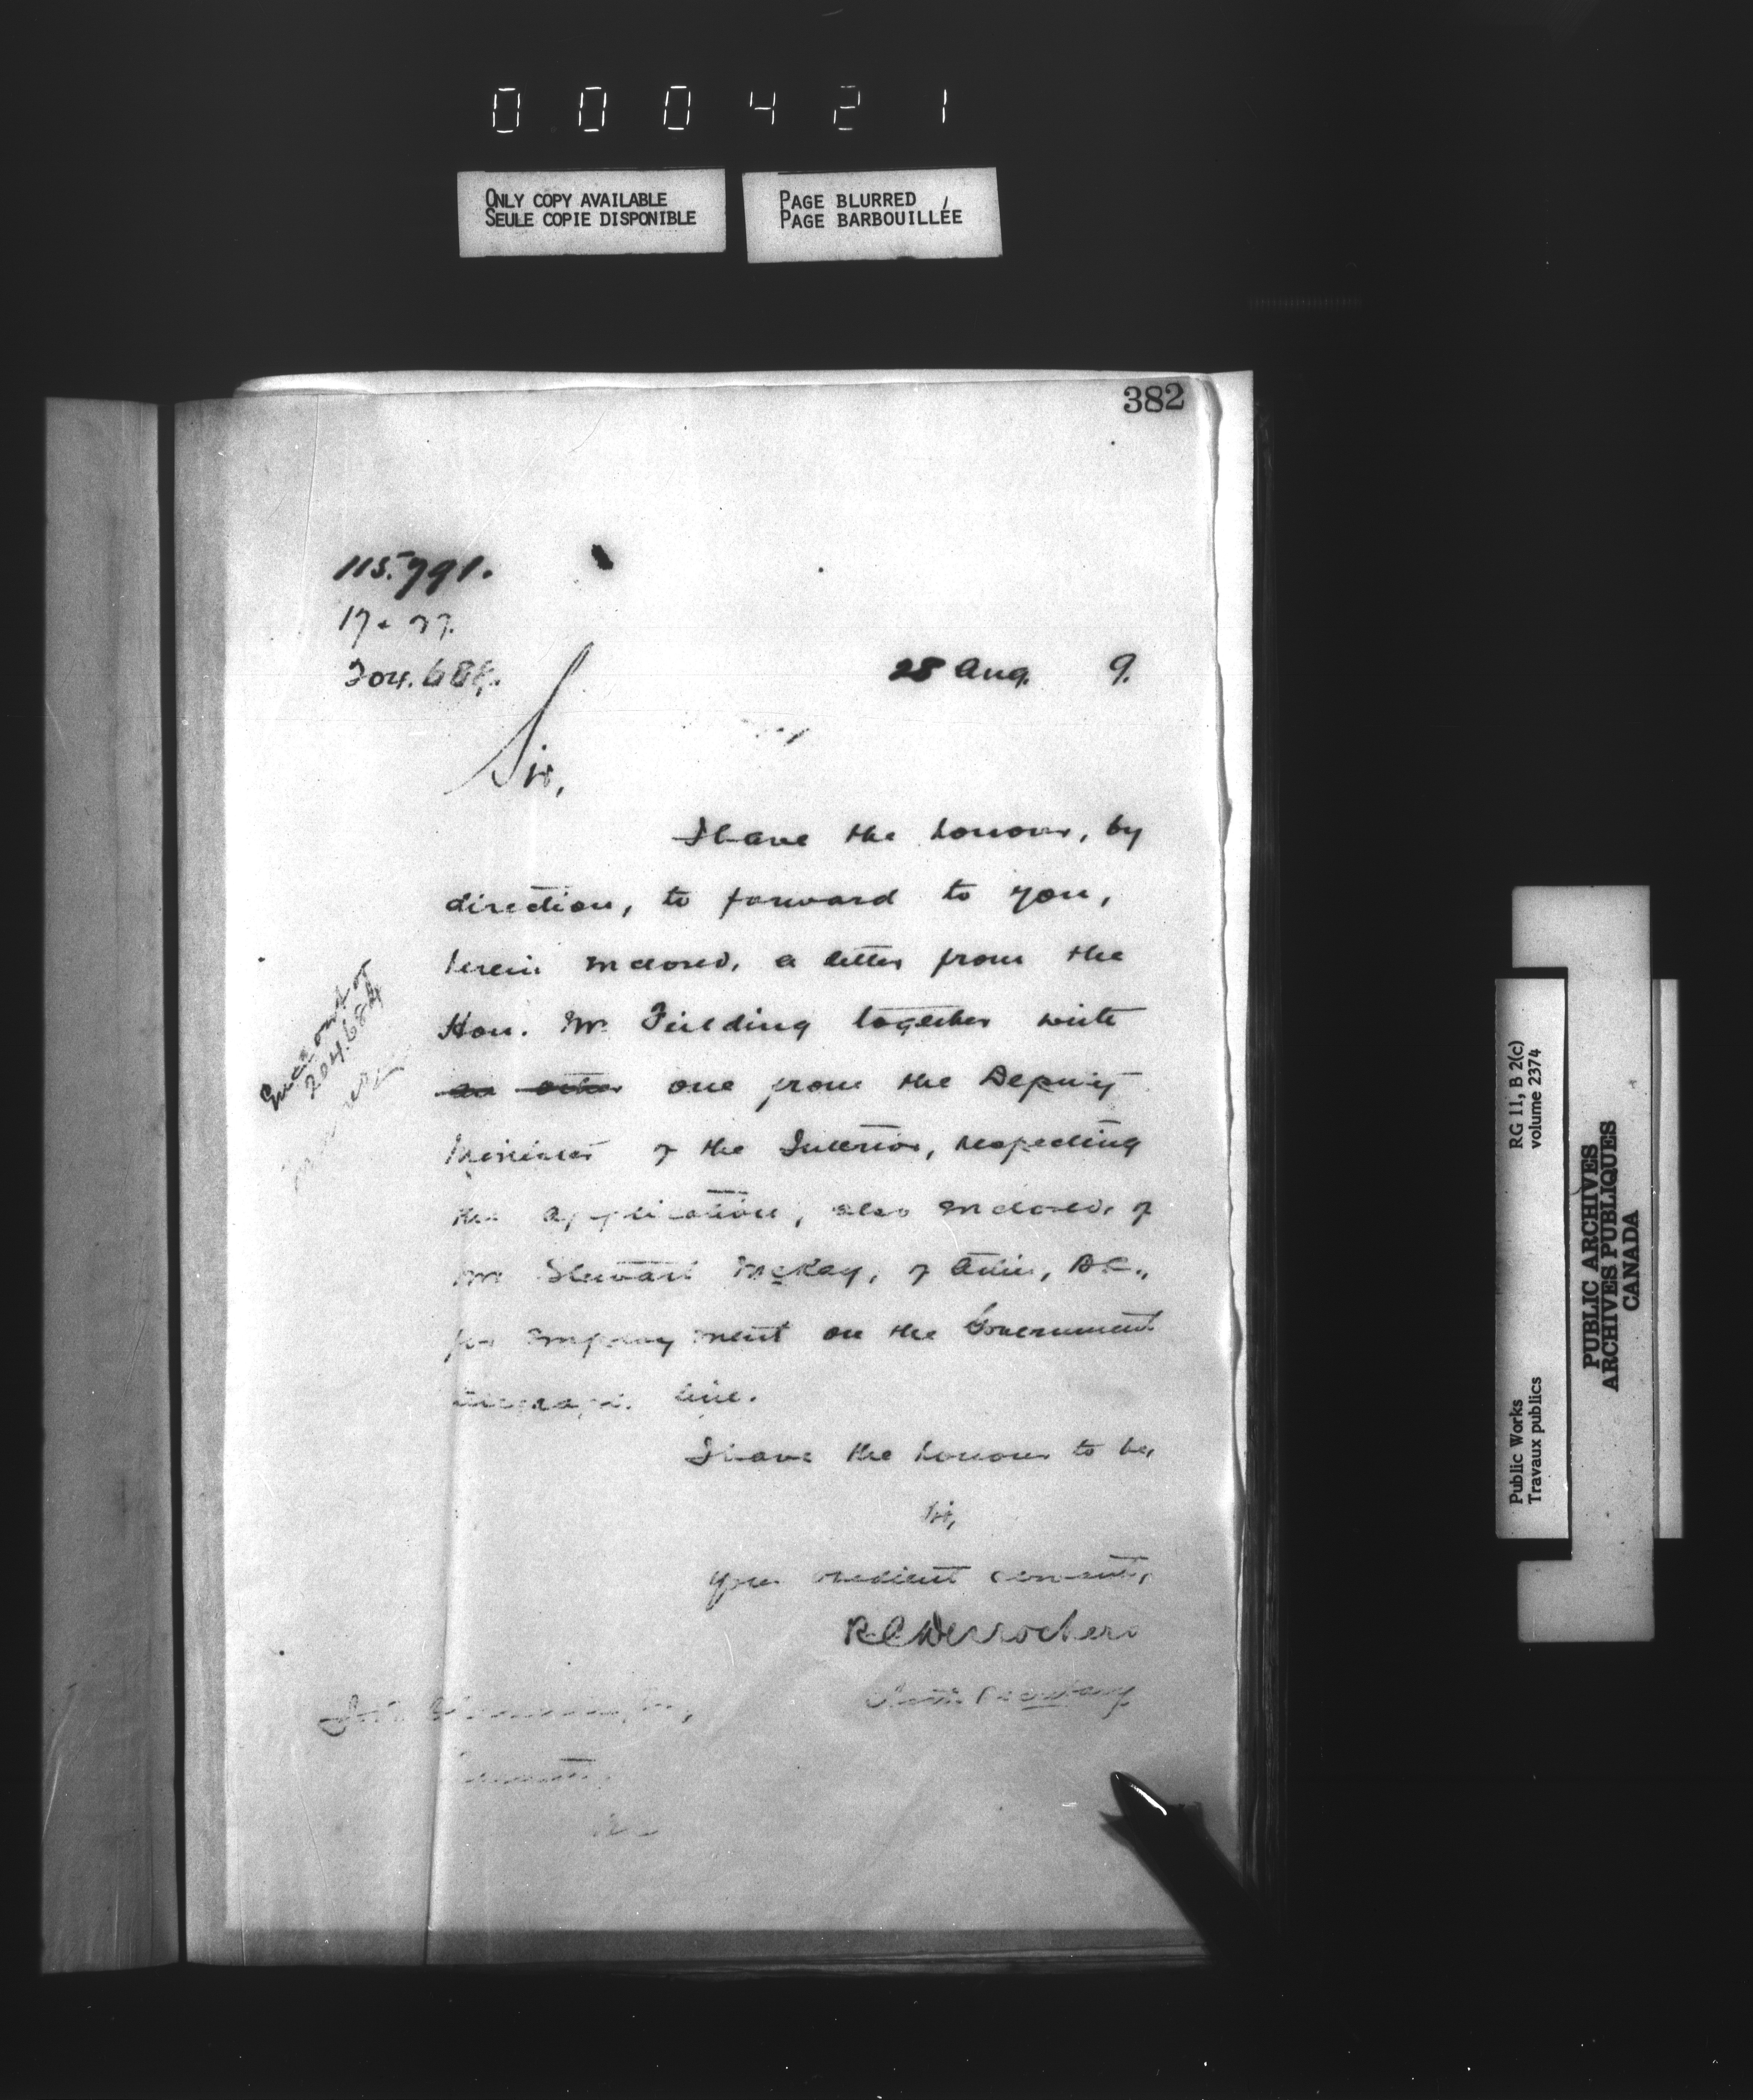 000421
ONLY COPY AVAILABLE
SEULE COPIE DISPONIBLE
PAGE BLURRED
PAGE BARBOUILLÉE
382
115.791.
17.
204.684.
28 Aug. 9.
Sir,
I have the honour, by
direction, to forward to you,
herein enclosed, a letter from the
Hon. Mr Fielding together with
an other one from the Deputy
Minister of the Interior, respecting
the application, also enclosed, of
Mr Stewart McKay, of Atlin, B.C.,
for employment on the Government
telegraph line.
I have the honour to be,
Sir,
Your obedient servant,
R C Desrochers
Secretary
out of
204.684
RG 11, B 2(c)
volume 2374
Public Works
Travaux publics
PUBLIC ARCHIVES
ARCHIVES PUBLIQUES
CANADA